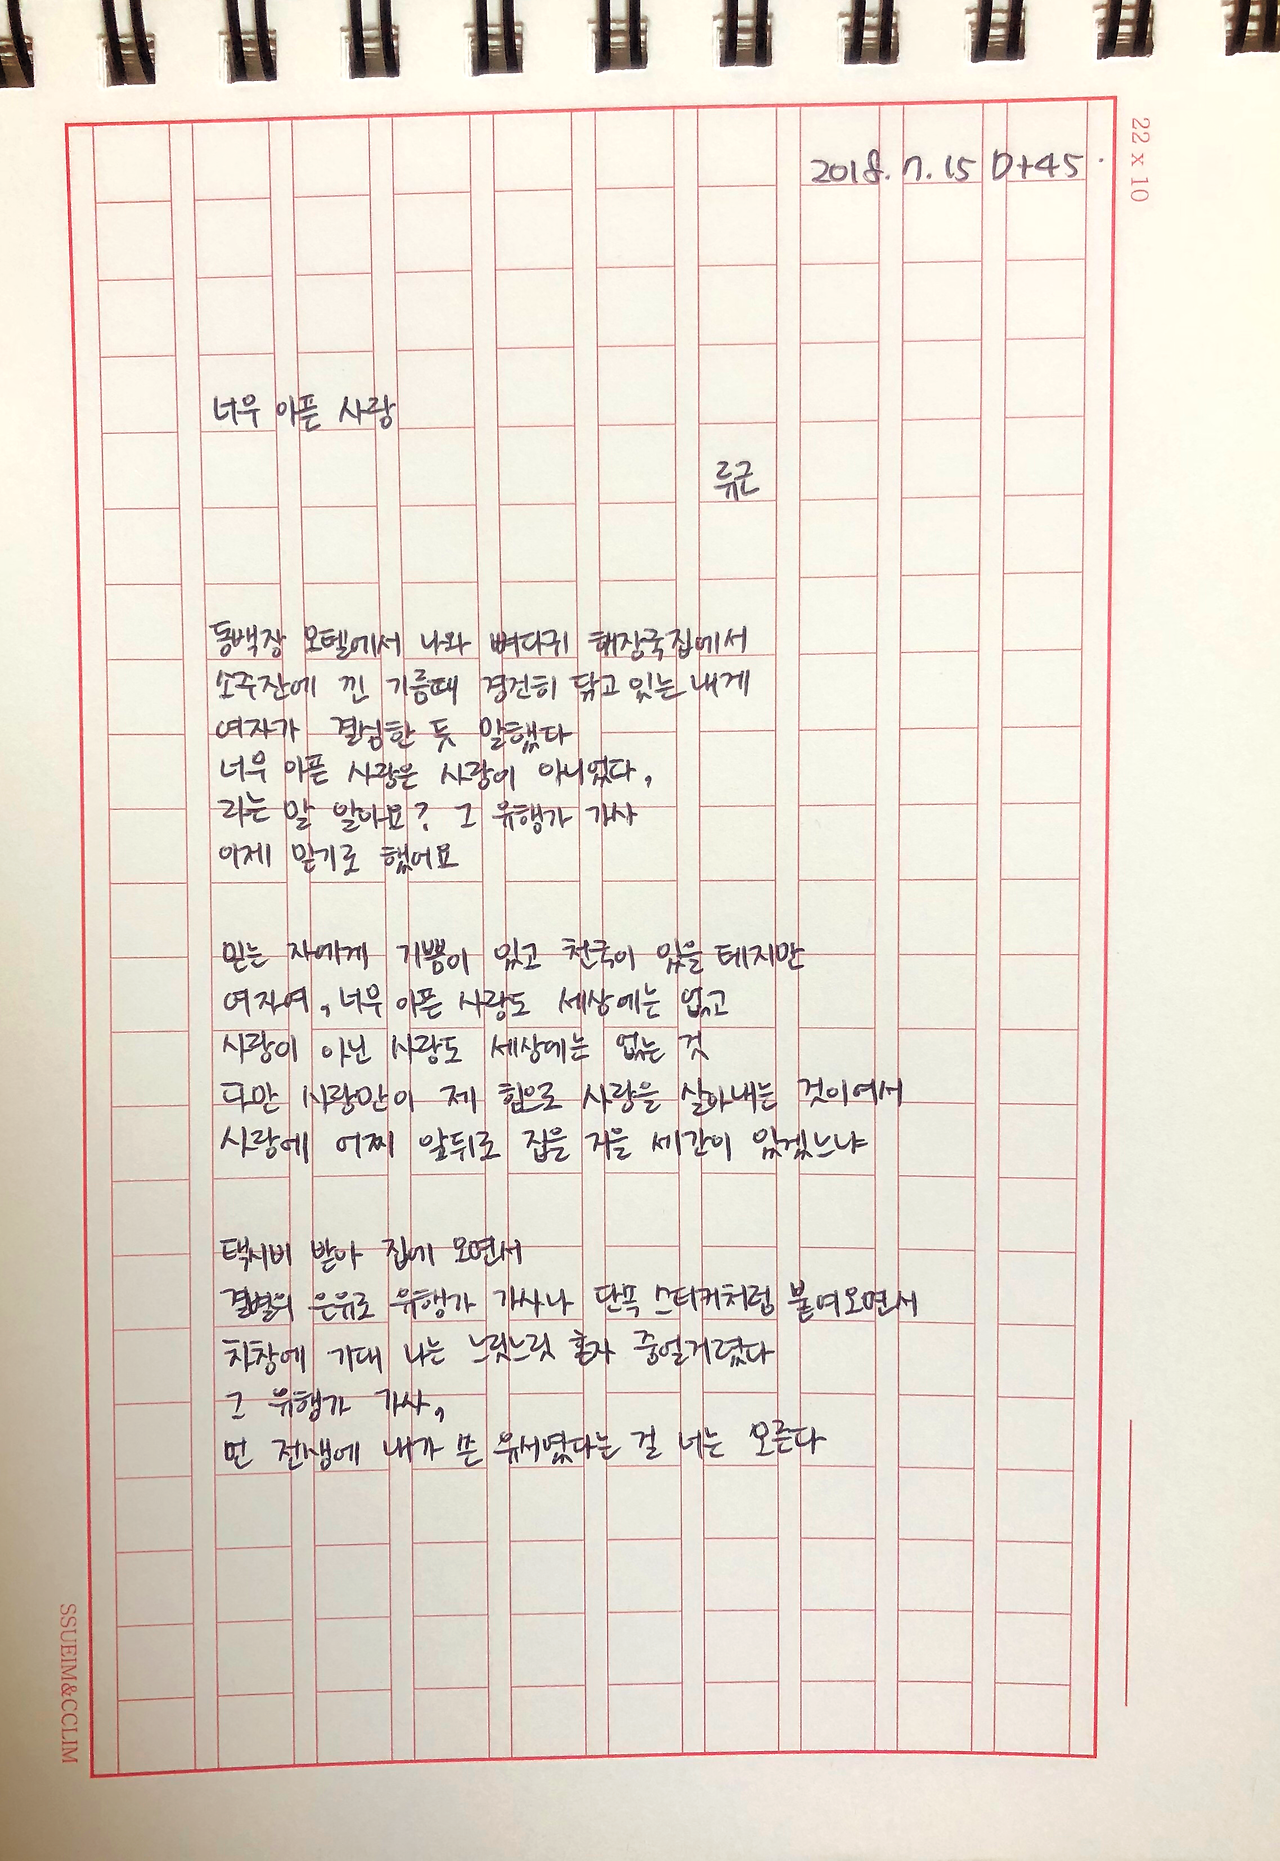 22 x 10
2018. 7. 15 D+45.
너무 아픈 사랑
류근
동백장 모텔에서 나와 뼈다귀 해장국집에서
소주잔에 낀 기름때 경건히 닦고 있는 내게
여자가 결심한 듯 말했다
너무 아픈 사랑은 사랑이 아니었다,
라는 말 알아요? 그 유행가 가사
이제 믿기로 했어요
믿는 자에게 기쁨이 있고 천국이 있을 테지만
여자여, 너무 아픈 사랑도 세상에는 없고
사랑이 아닌 사랑도 세상에는 없는 것
다만 사랑만이 제 힘으로 사랑을 살아내는 것이어서
사랑에 어찌 앞뒤로 집을 지을 세간이 있겠느냐
택시비 받아 집에 오면서
결별의 은유로 유행가 가사나 단폭 스티커처럼 붙여오면서
차창에 기대 나는 느릿느릿 혼자 중얼거렸다
그 유행가 가사,
먼 전생에 내가 쓴 유서였다는 걸 너는 모른다
SSUEIM&CCLIM